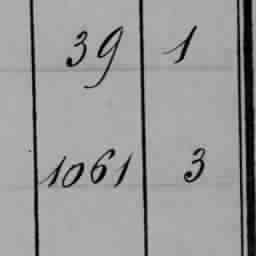 39 1
1061 3